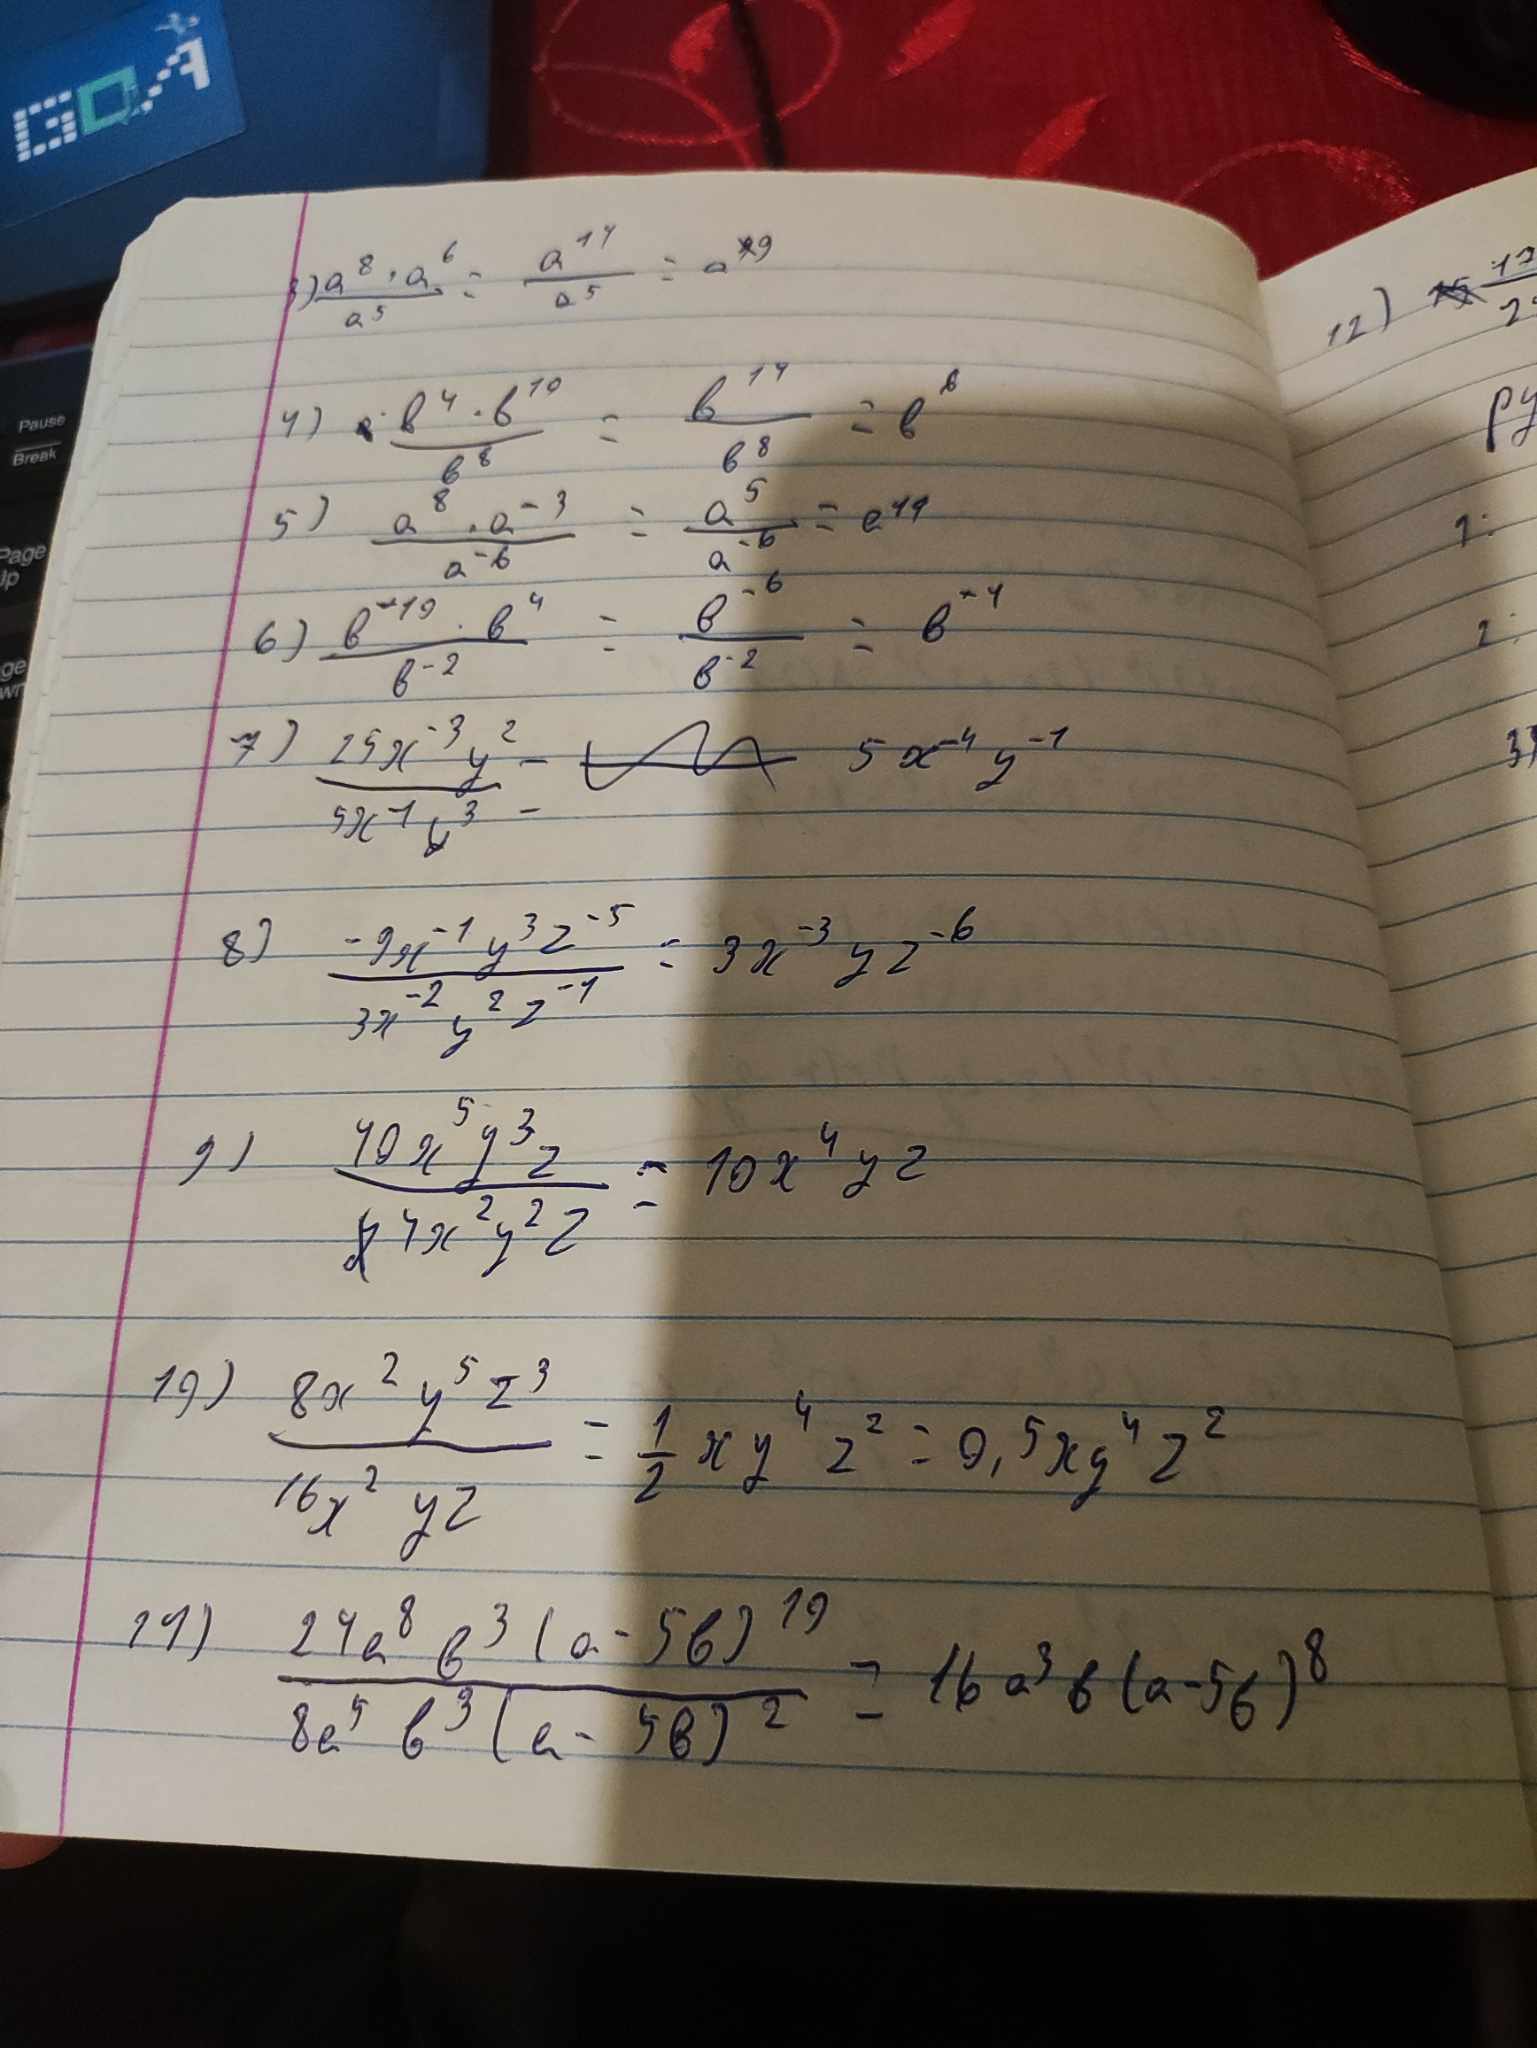 GDA
Pause
Break
Page
Up
3) a⁸ · a⁶ / a⁵ = a¹⁴ / a⁵ = a⁹
4) в⁴ · в¹⁰ / в⁸ = в¹⁴ / в⁸ = в⁶
5) a⁸ · a⁻³ / a⁻⁶ = a⁵ / a⁻⁶ = a¹¹
6) в⁻¹⁰ · в⁴ / в⁻² = в⁻⁶ / в⁻² = в⁻⁴
7) 25x⁻³y² / 5x⁻¹y³ = 5x⁻⁴y⁻¹
8) -9x⁻¹y³z⁻⁵ / 3x⁻²y²z⁻¹ = 3x⁻³yz⁻⁶
9) 40x⁵y³z / 4x²y²z = 10x⁴yz
10) 8x²y⁵z³ / 16x²yz = 1/2 xy⁴z² = 0,5xy⁴z²
11) 24a⁸в³(a-5в)¹⁰ / 8a⁵в³(a-5в)² = 16a³в(a-5в)⁸
12)
1:
2:
3)